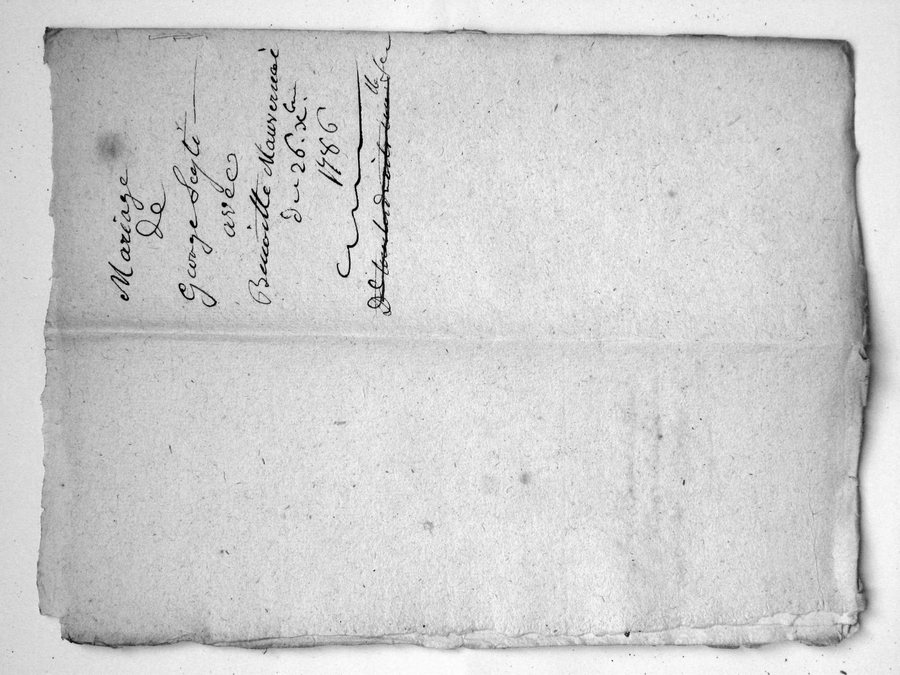 Mariage
de
George
avec
Benoitte Mauvernai
du 26. Xbre.
1786